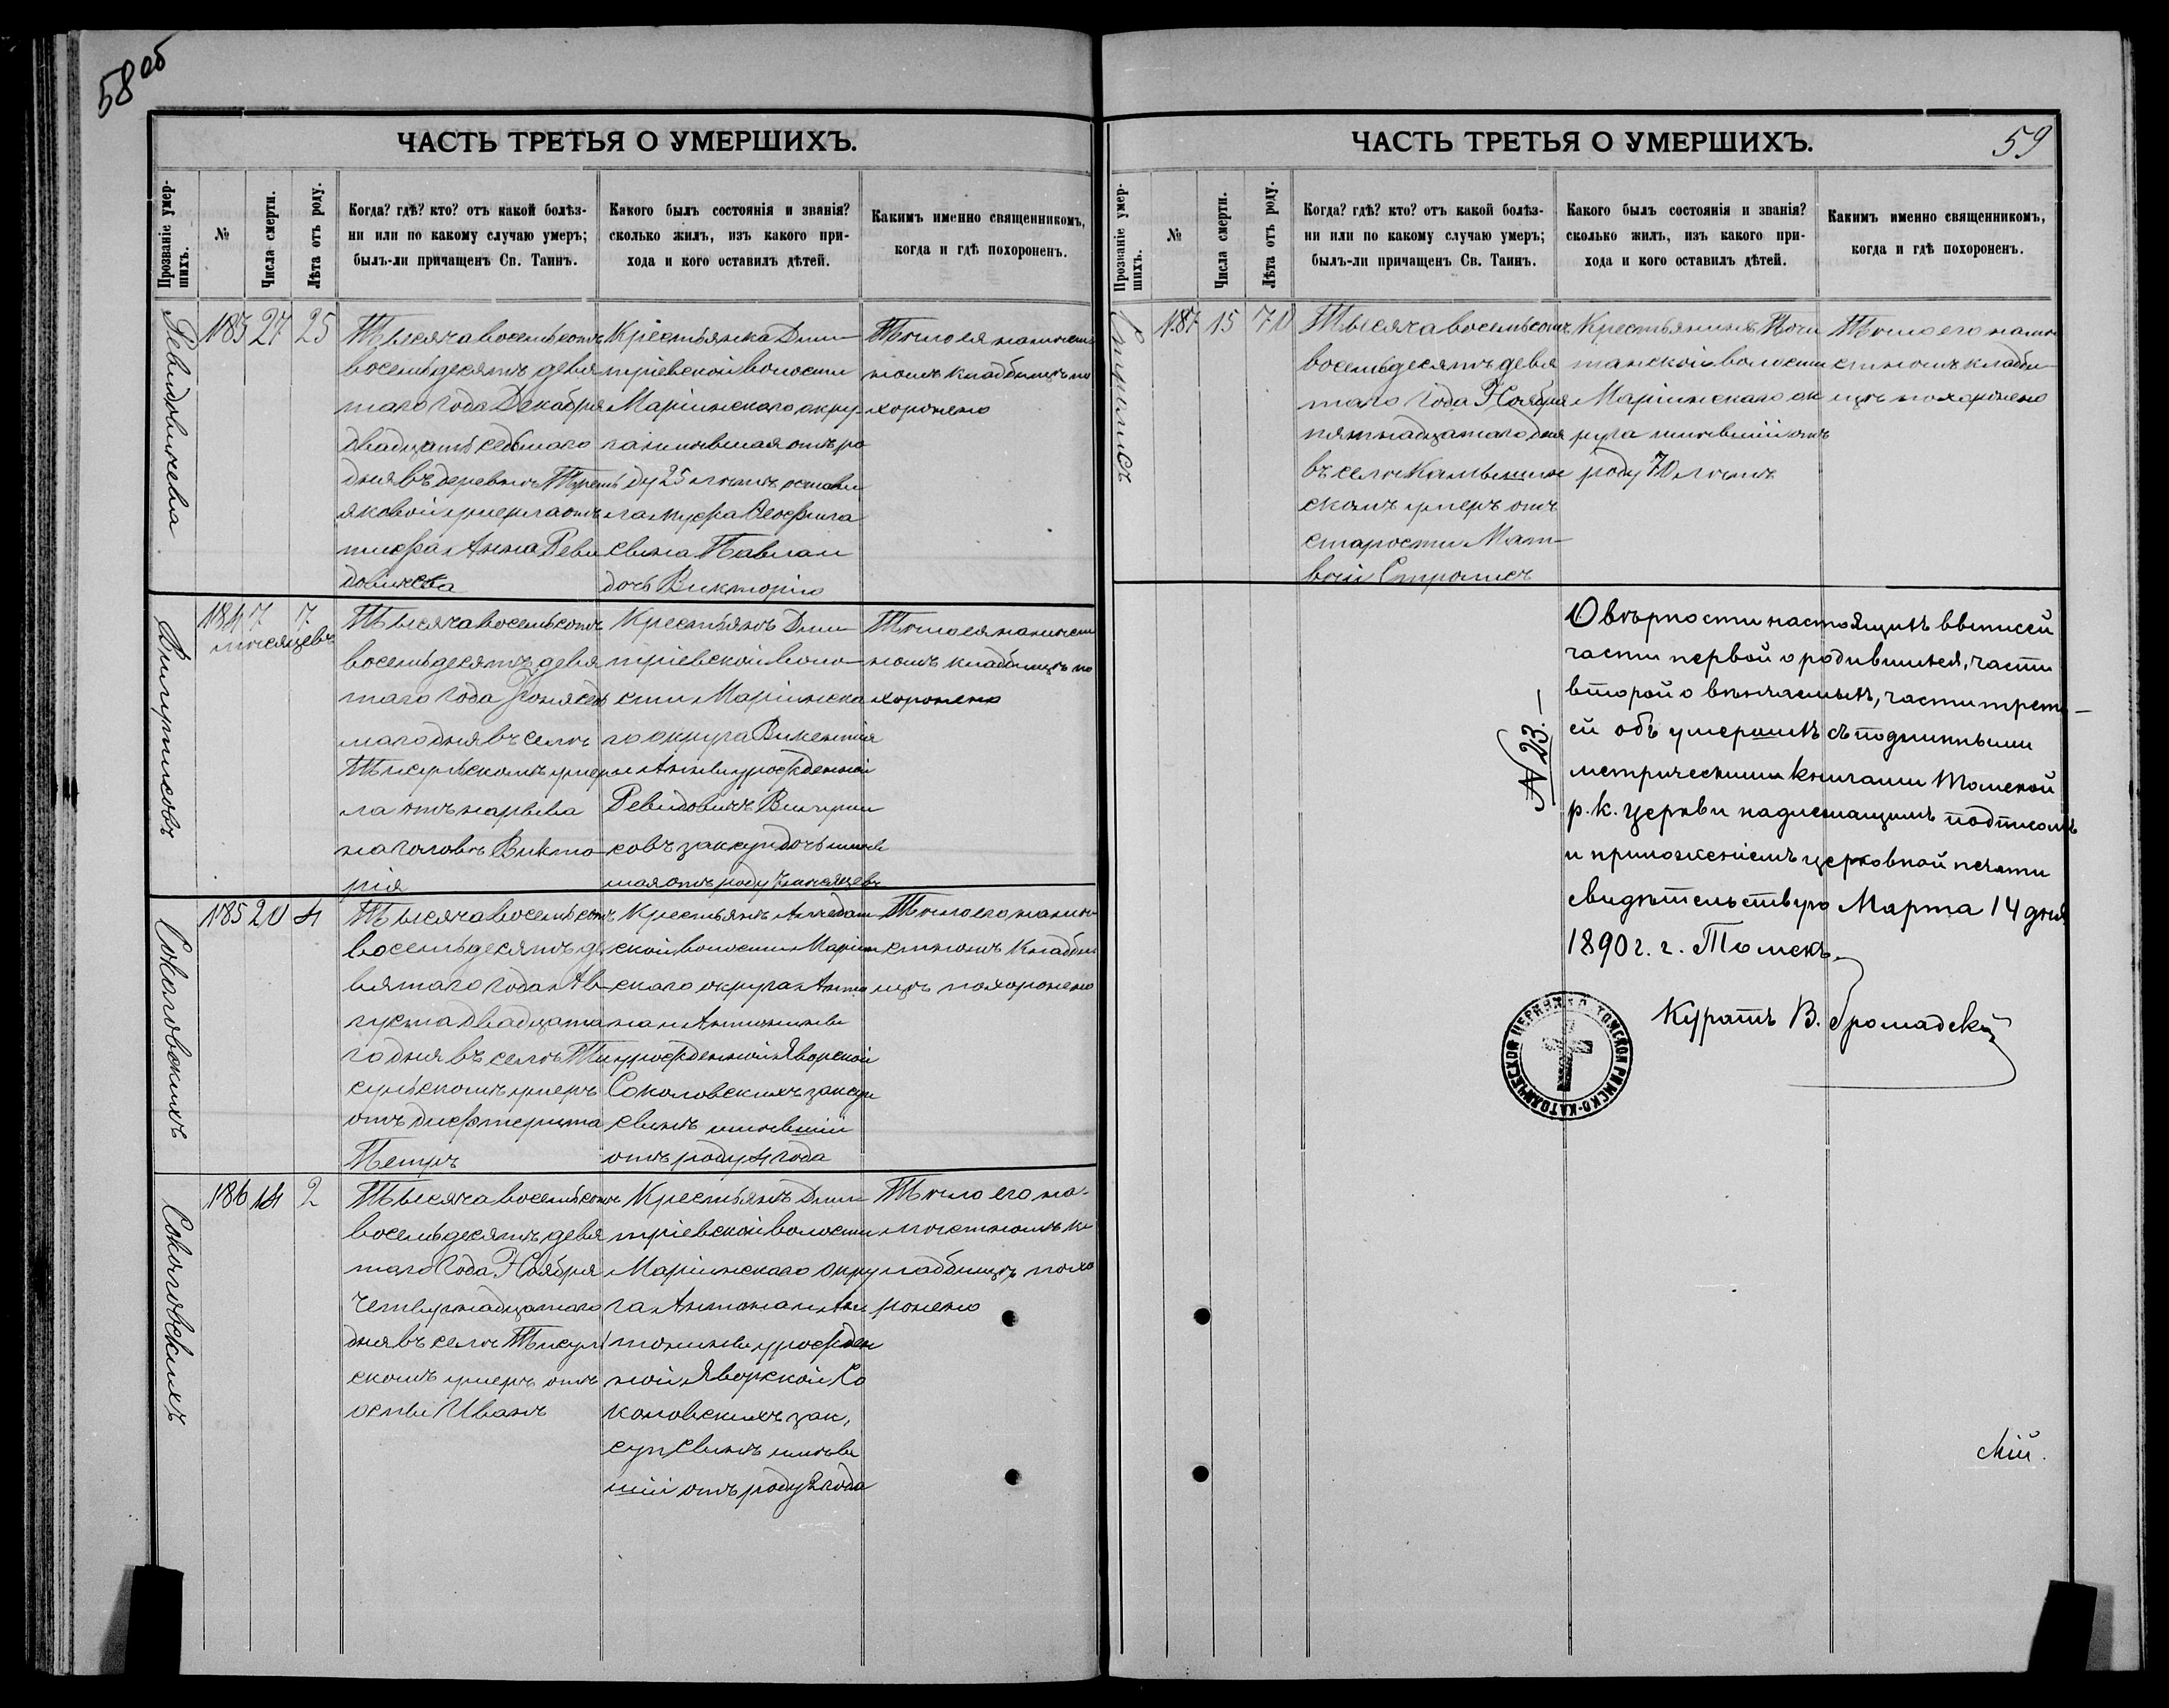 58 об
ЧАСТЬ ТРЕТЬЯ О УМЕРШИХЪ.
Прозваніе умер-
шихъ.
№
Числа смерти.
Лѣта отъ роду.
Когда? гдѣ? кто? отъ какой болѣз-
ни или по какому случаю умеръ;
былъ-ли причащенъ Св. Таинъ.
Какого былъ состоянія и званія?
сколько жилъ, изъ какого при-
хода и кого оставилъ дѣтей.
Какимъ именно священникомъ,
когда и гдѣ похороненъ.
Ревидовичева
183 27 25
Тысяча восемьсотъ
восемьдесятъ девя
таго года Декабря
двадцать седьмаго
дня въ деревнѣ
яковой умерла отъ
тифа Анна Реви
довичева
Крестьянка Дми
тріевской волости
Маріинскаго окру
га имѣвшая отъ ро
ду 25 лѣтъ остави
ла мужа Ѳеофила
сына Павла и
дочь Викторію
Тѣло ея на мѣст
номъ кладбищѣ по
хоронено
184 7 7
мѣсяцевъ
Тысяча восемьсотъ
восемьдесятъ девя
таго года Іюня седь
маго дня въ селѣ
Тисульскомъ умер
ла отъ нарыва
на головѣ Викто-
рія
Крестьянъ Дми
тріевской воло-
сти Маріинска
го округа Викентія
и Анны урожденной
Ревидовичъ
ковъ зак дочь имѣв
шая отъ роду 7 мѣсяцевъ
Тѣло ея на мѣст
номъ кладбищѣ по
хоронено
Соколовскихъ
185 20 4
Тысяча восемьсотъ
восемьдесятъ де
вятаго года Ав-
густа двадцата
го дня въ селѣ Ти
сульскомъ умеръ
отъ дифтерита
Петръ
Крестьянъ Алчедат
ской волости Маріин
скаго округа Анто
на и Антонины
урожденной Яворской
Соколовскихъ зак суп
сынъ имѣвшій
отъ роду 4 года
Тѣло его на мѣ
стномъ кладби
щѣ похоронено
Соколовскихъ
186 14 2
Тысяча восемьсотъ
восемьдесятъ девя
таго года Ноября
четырнадцатаго
дня въ селѣ Тисуль
скомъ умеръ отъ
оспы Иванъ
Крестьянъ Дми
тріевской волости
Маріинскаго окру
га Антона и Ан
тонины урожден
ной Яворской Со
коловскихъ зак,
суп сынъ имѣв
шій отъ роду 2 года
Тѣло его на
мѣстномъ к
ладбищѣ похо
ронено
ЧАСТЬ ТРЕТЬЯ О УМЕРШИХЪ.
59
Прозваніе умер-
шихъ.
№
Числа смерти.
Лѣта отъ роду.
Когда? гдѣ? кто? отъ какой болѣз-
ни или по какому случаю умеръ;
былъ-ли причащенъ Св. Таинъ.
Какого былъ состоянія и званія?
сколько жилъ, изъ какого при-
хода и кого оставилъ дѣтей.
Какимъ именно священникомъ,
когда и гдѣ похороненъ.
187 15 70
Тысяча восемьсотъ
восемьдесятъ девя
таго года Ноября
пятнадцатаго дня
въ селѣ Камышин
скомъ умеръ отъ
старости Мат-
вѣй
Крестьянинъ Почи
танской волости
Маріинскаго ок
руга имѣвшій отъ
роду 70 лѣтъ
Тѣло его на мѣ
стномъ кладби
щѣ похоронено
№ 23.—
О вѣрности настоящихъ выписей
части первой о родившихся, части
второй о вѣнчаемыхъ, части треть-
ей объ умершихъ съ подлинными
метрическими книгами Томской
р. к. Церкви надлежащимъ подписомъ
и приложеніемъ церковной печати
свидѣтельствую Марта 14 дня
1890 г. г. Томскъ.
Куратъ В. Громадскій
ТОМСКОЙ РИМСКО-КАТОЛИЧЕСКОЙ ЦЕРКВИ